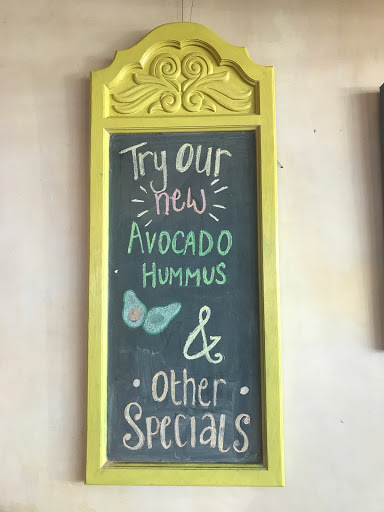 Try our
new
AVOCADO
HUMMUS
&
• Other •
SPECIALS